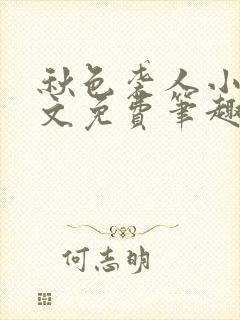 秋色袭人小
文免费筆趣
何志明